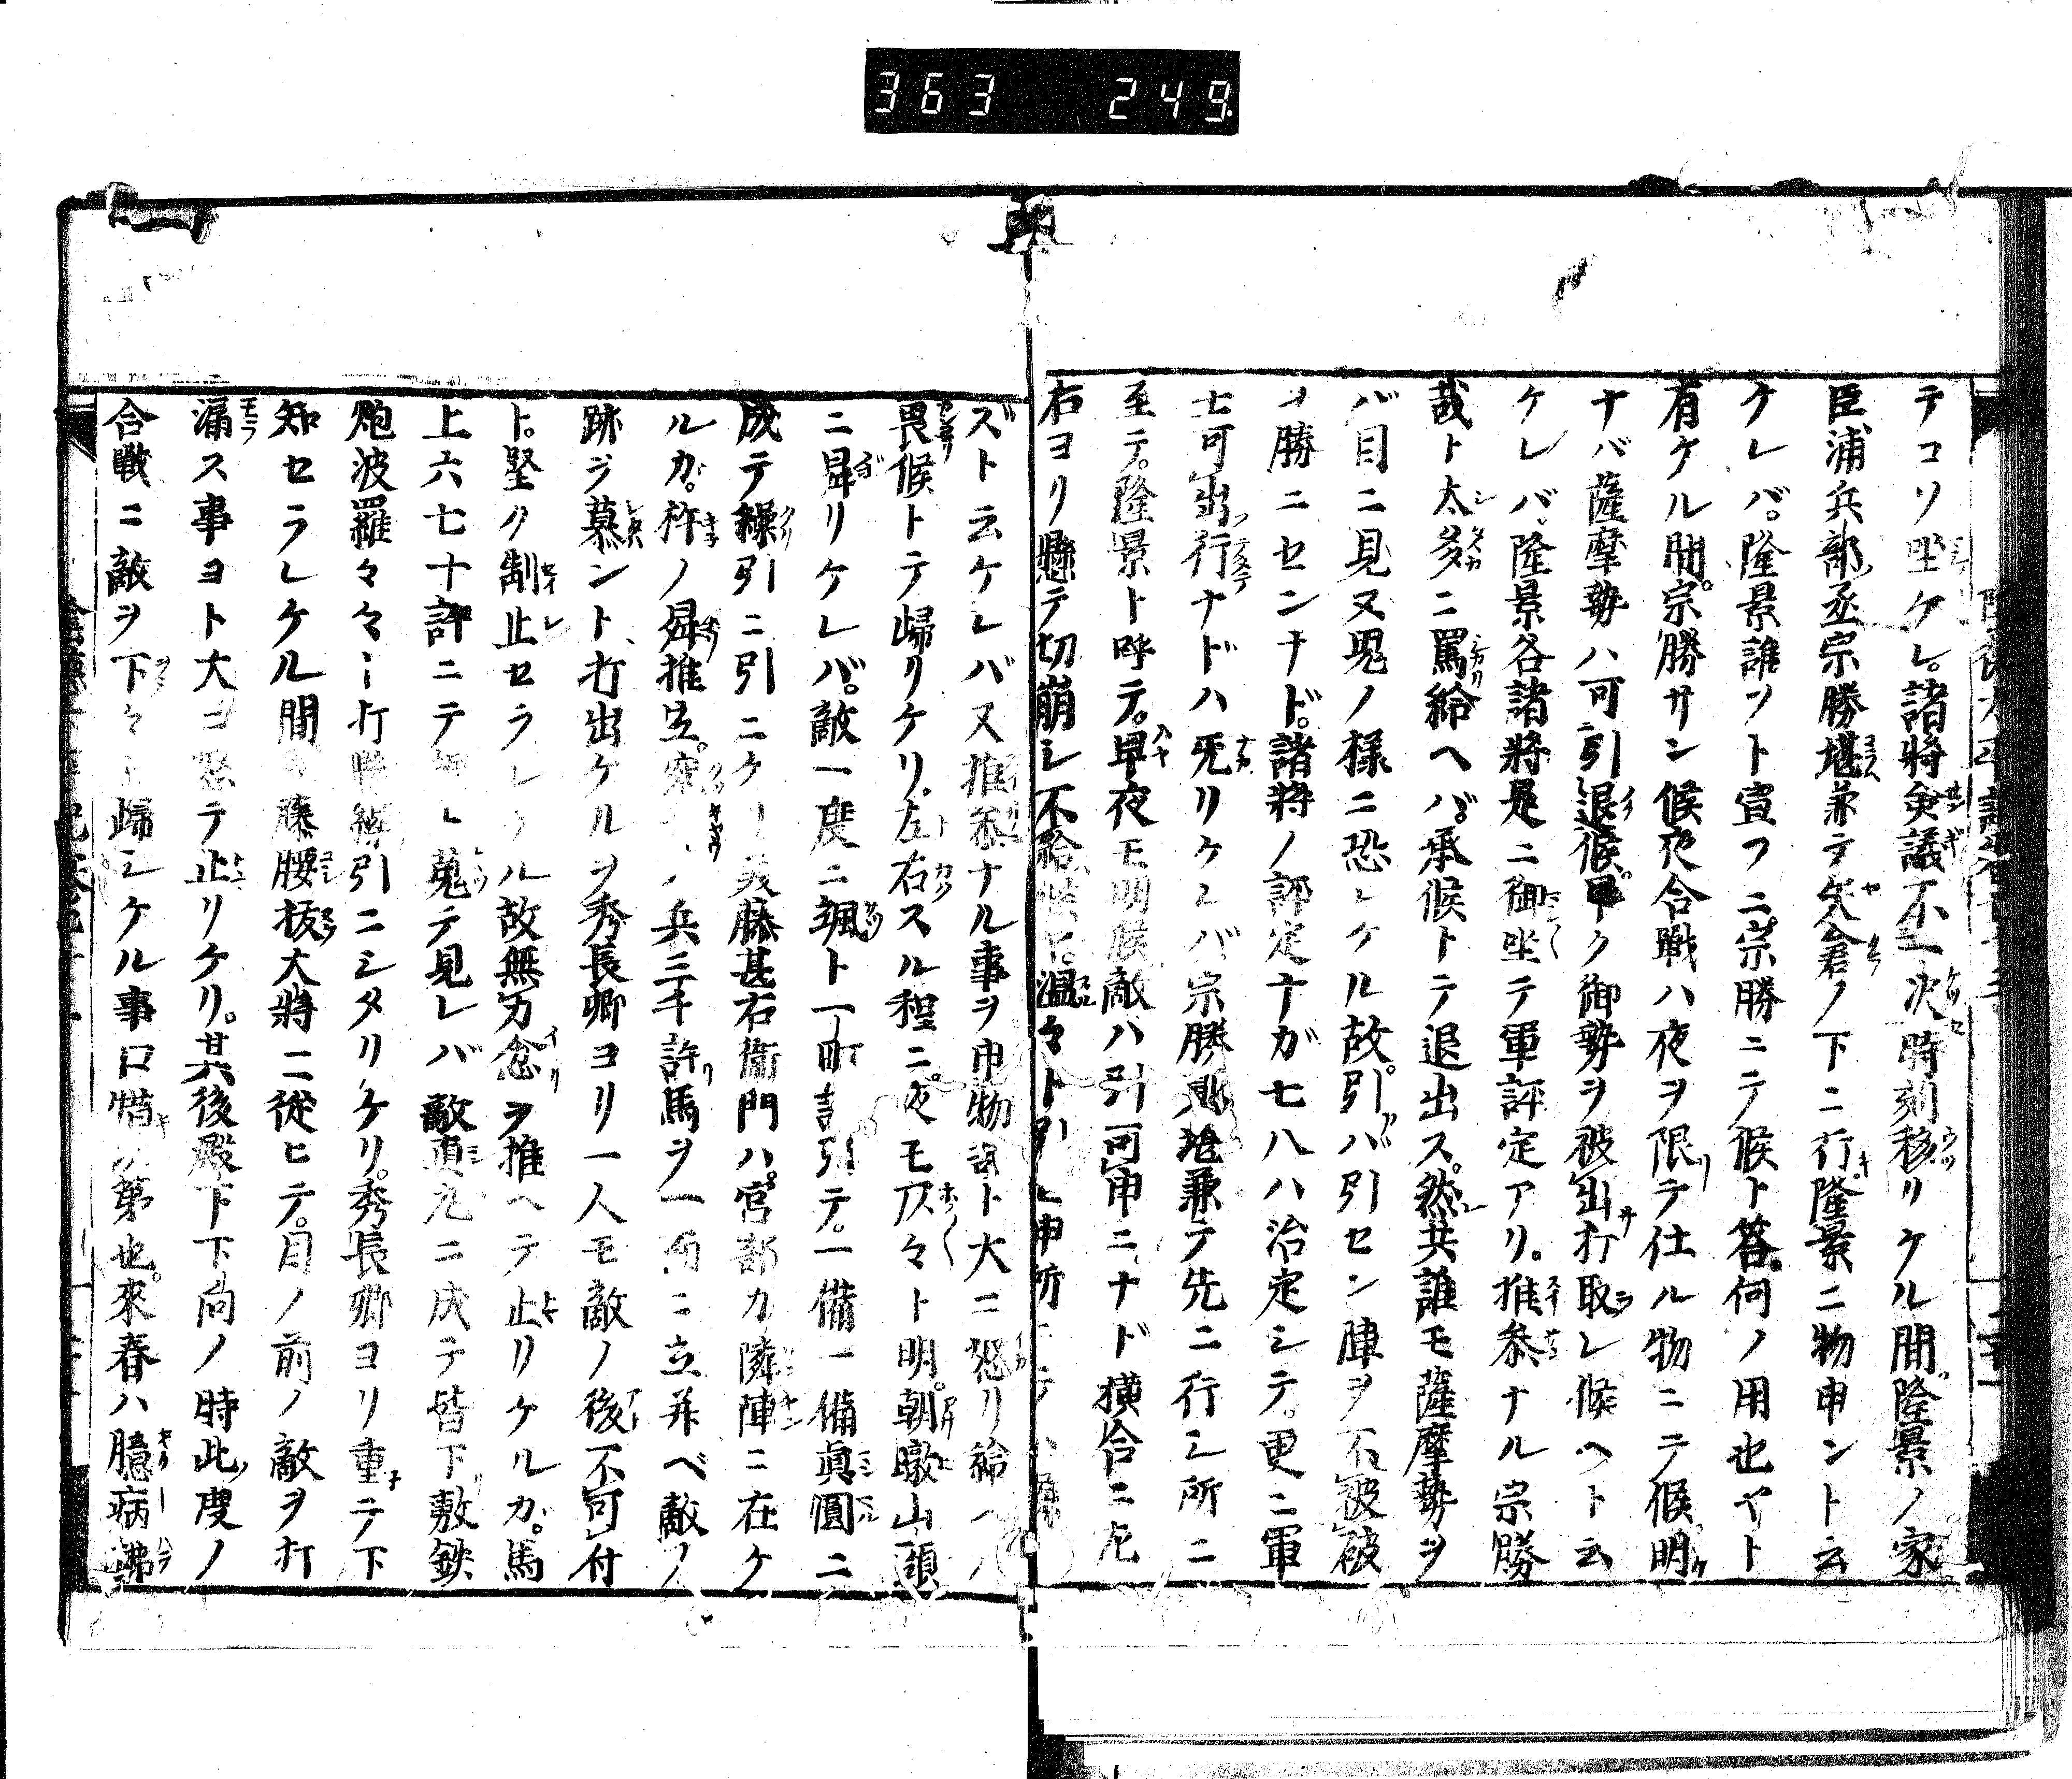 363 249
テコソ坐ケレ。諸將僉議不一決時刻移リケル間隆景ノ家
臣浦兵部丞宗勝堪兼テ矢倉ノ下ニ行。隆景ニ物申ント云
ケレバ。隆景誰ソト宣フニ宗勝ニテ候ト答。何ノ用也ヤト
有ケル間。宗勝サン候夜合戰ハ夜ヲ限テ仕ル物ニテ候明
ナバ薩摩勢ハ可引退候早ク御勢ヲ被出打取レ候ヘト云
ケレバ。隆景各諸將是ニ御坐テ軍評定アリ。推參ナル宗勝
哉ト太多ニ罵給ヘバ。承候トテ退出ス。然共誰モ薩摩勢ヲ
バ目ニ見又鬼ノ樣ニ恐レケル故。引バ引セン陣ヲ不被破
ヲ勝ニセンナド。諸將ノ評定十ガ七八ハ治定シテ。更ニ軍
士可出行ナドハ无リケレバ宗勝兼テ先ニ行シ所ニ
至テ。隆景ト呼テ。早夜モ明候敵ハ引可申ニ。ナド横合ニ
右ヨリ懸テ切崩シ不給候ト。温々ト引申所
ズト云ケレバ又推參ナル事ヲ申物哉ト大ニ怒リ給ヘバ
畏候トテ歸リケリ。左右スル程ニ。夜モ仄々ト明。朝暾山頭
ニ昇リケレバ。敵一度ニ颯ト一町計引テ。一備一備眞圓ニ
成テ繰引ニ引ニケリ美藤甚右衞門ハ。宮部カ隣陣ニ在ケ
ルガ。杵ノ舁推立。ノ兵三千許馬ヲ一面ニ立并ベ敵ノ
跡ヲ慕ント打出ケルヲ秀長卿ヨリ一人モ敵ノ後不可付
ト。堅ク制止セラレケル故無力念ヲ推ヘテ止リケルガ。馬
上六七十計ニテ蒐テ見レバ敵眞丸ニ成テ皆下敷鉄
炮波羅々々ト打引ニシタリケリ。秀長卿ヨリ重テ下
知セラレケル間藤腰拔大將ニ從ヒテ。目ノ前ノ敵ヲ打
漏ス事ヨト大ニ怒テ止リケリ。其後殿下下向ノ時此度ノ
合戰ニ敵ヲ下々ト歸シケル事口惜次第也。來春ハ臆病